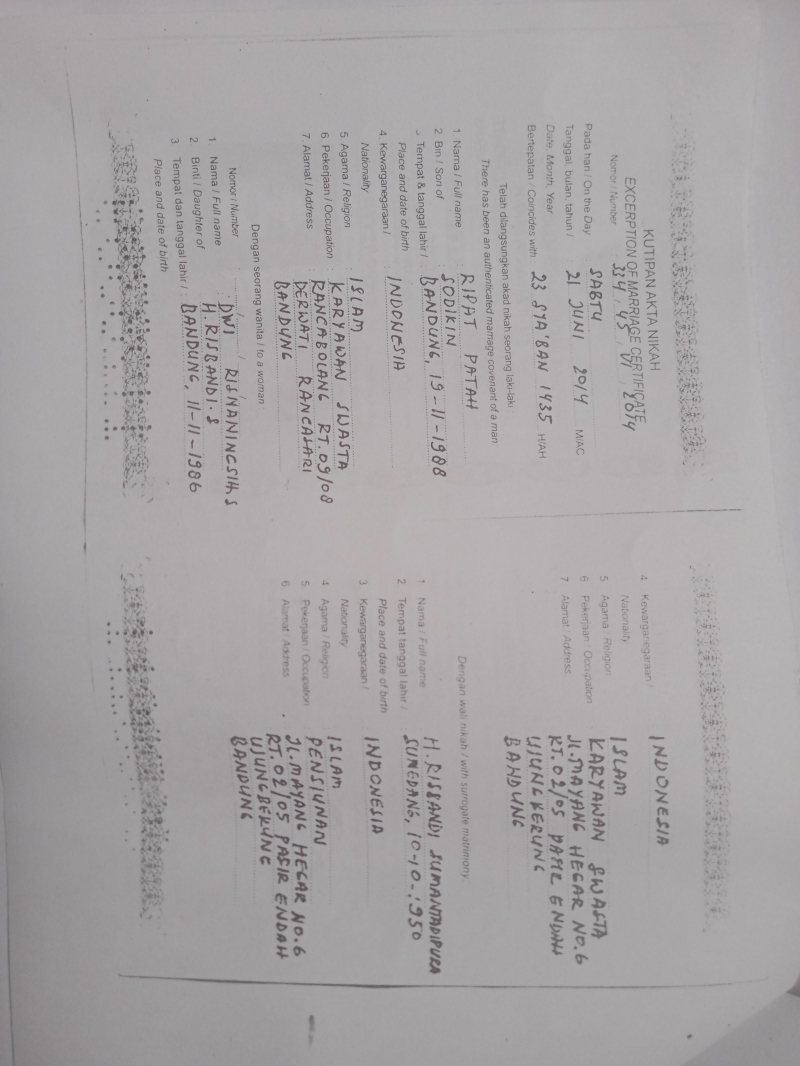 KUTIPAN AKTA NIKAH
EXCERPTION OF MARRIAGE CERTIFICATE
Nomor / Number 334 / 45 / VI / 2014
Pada hari / On the Day SABTU
Tanggal, bulan, tahun / 21 JUNI 2014 M/AC
Date, Month, Year
Bertepatan / Coincides with 23 SYA'BAN 1435 H/AH
Telah dilangsungkan akad nikah seorang laki-laki
There has been an authenticated marriage covenant of a man
1. Nama / Full name : RIPAT PATAH
2. Bin / Son of : SODIKIN
3. Tempat & tanggal lahir / : BANDUNG, 19-11-1988
Place and date of birth
4. Kewarganegaraan / : INDONESIA
Nationality
5 Agama / Religion : ISLAM
6 Pekerjaan / Occupation : KARYAWAN SWASTA
7 Alamat / Address : RANCABOLANG RT.09/08
DERWATI RANCASARI
BANDUNG
Dengan seorang wanita / to a woman
Nomor / Number : / /
1 Nama / Full name : DWI RISNANINGSIH S
2. Binti / Daughter of : H. RISBANDI.S
3 Tempat dan tanggal lahir / : BANDUNG, 11-11-1986
Place and date of birth
4 Kewarganegaraan / INDONESIA
Nationality
5 Agama / Religion ISLAM
6 Pekerjaan / Occupation KARYAWAN SWASTA
7 Alamat / Address JL.MAYANG HEGAR NO.6
RT.02/05 PASIR ENDAH
UJUNGKERUNG
BANDUNG
Dengan wali nikah / with surrogate matrimony
1 Nama / Full name H. RISBANDI SUMANTADIPURA
2 Tempat tanggal lahir / SUMEDANG, 10-10-1950
Place and date of birth
3 Kewarganegaraan / INDONESIA
Nationality
4 Agama / Religion ISLAM
5 Pekerjaan / Occupation PENSIUNAN
6 Alamat / Address JL.MAYANG HEGAR NO.6
RT.02/05 PASIR ENDAH
UJUNGBERUNG
BANDUNG